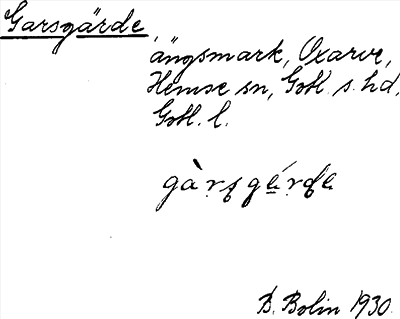 Garsgärde,
ängsmark, Oxarve,
Hemse sn, Gotl. s. hd,
Gotl. l.
B. Bolin 1930.